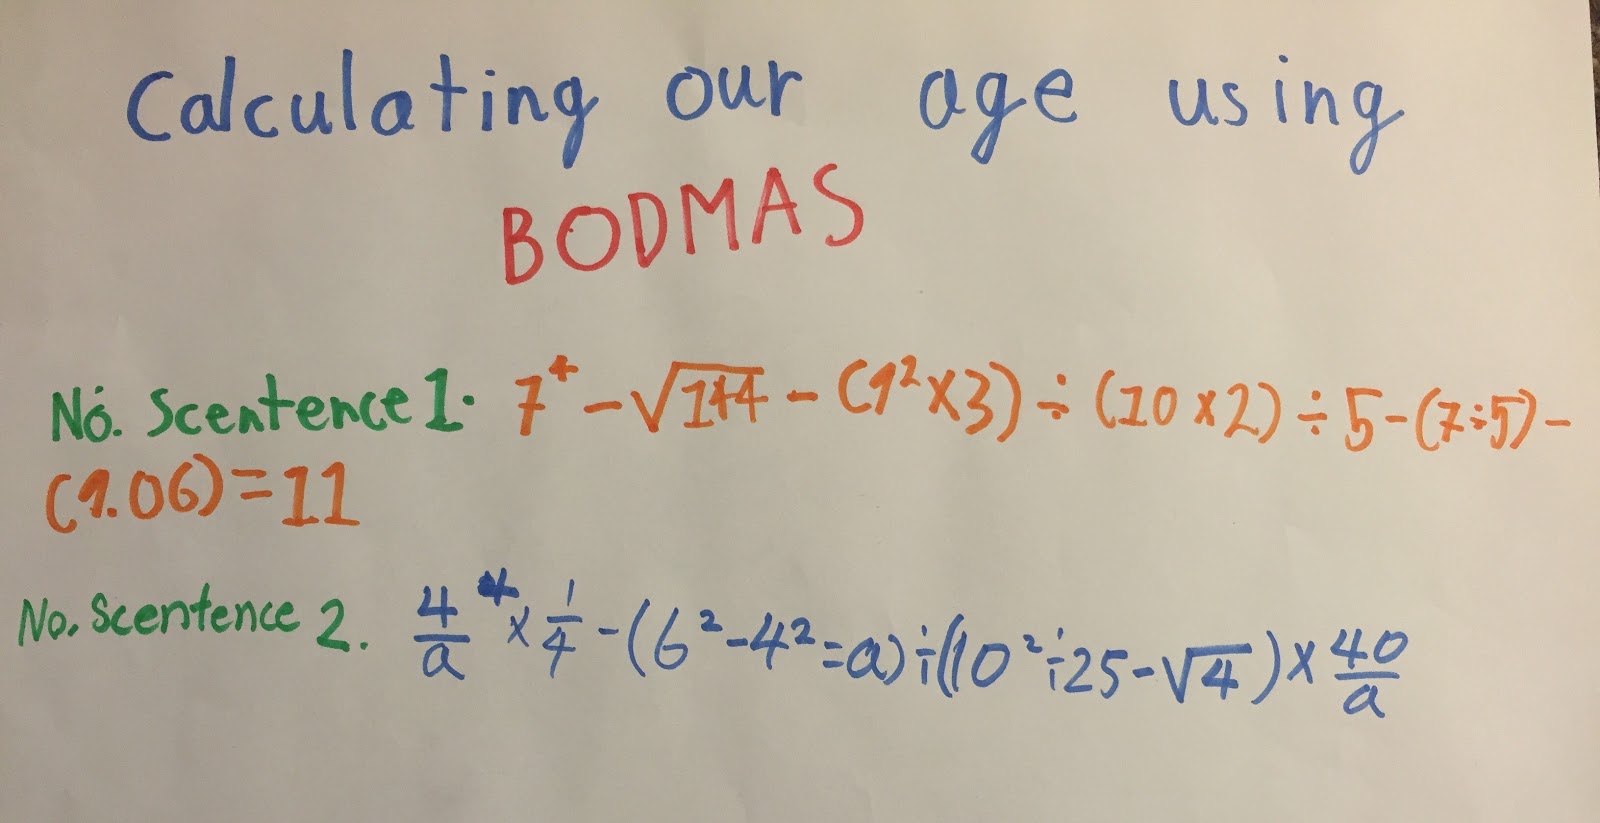 Calculating our age using
BODMAS
No. Scentence 1. 7⁴ - √144 - (9² × 3) ÷ (10 × 2) ÷ 5 - (7 ÷ 5) -
(9.06) = 11
No. Scentence 2. 4/a ⁴ × 1/4 - (6² - 4² = a) ÷ (10² ÷ 25 - √4) × 40/a